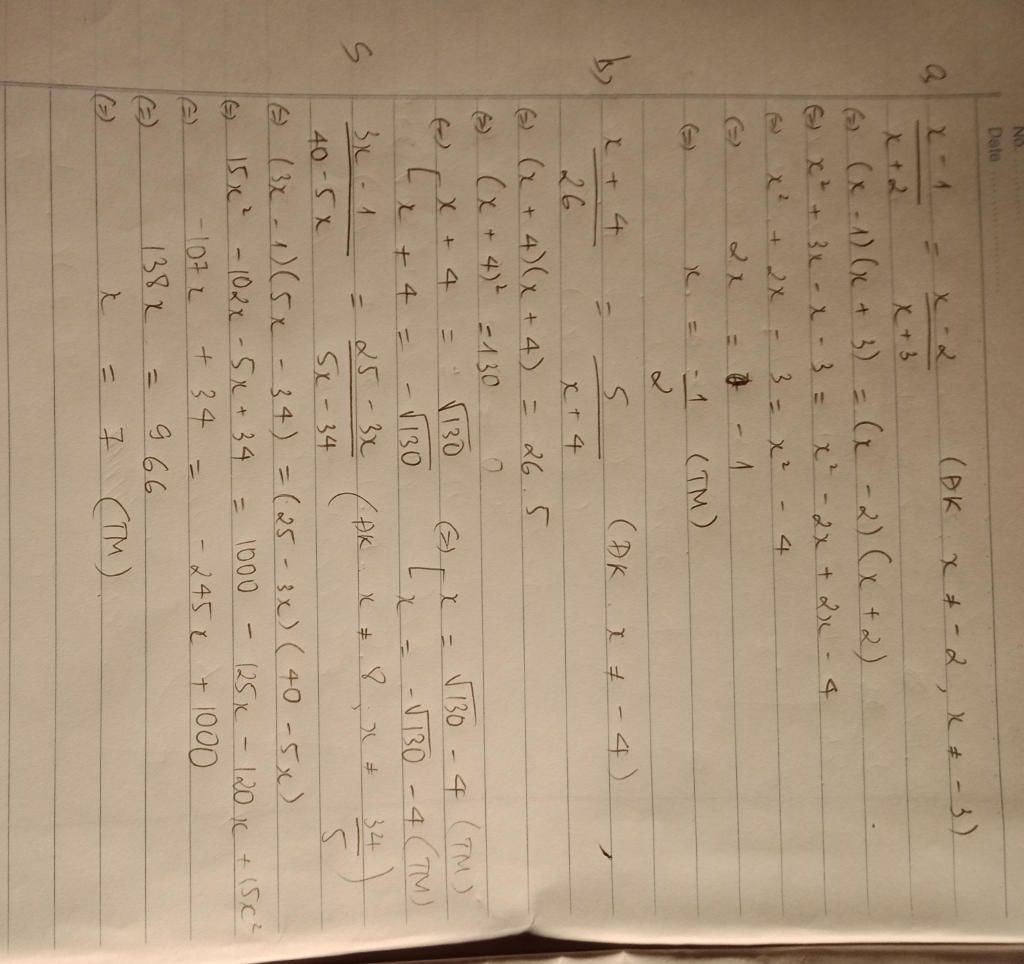 No.
Date
a, x - 1 / x + 2 = x - 2 / x + 3 (ĐK x ≠ - 2, x ≠ - 3)
(=) (x - 1)(x + 3) = (x - 2)(x + 2)
(=) x² + 3x - x - 3 = x² - 2x + 2x - 4
(=) x² + 2x - 3 = x² - 4
(=) 2x = - 1
(=) x = - 1 / 2 (TM)
b, x + 4 / 26 = 5 / x + 4 (ĐK. x ≠ - 4)
(=) (x + 4)(x + 4) = 26.5
(=) (x + 4)² = 130
(=) [ x + 4 = √130 (=) [ x = √130 - 4 (TM)
[ x + 4 = - √130 [ x = - √130 - 4 (TM)
3x - 1 / 40 - 5x = 25 - 3x / 5x - 34 (ĐK. x ≠ 8, x ≠ 34 / 5)
(=) (3x - 1)(5x - 34) = (25 - 3x)(40 - 5x)
(=) 15x² - 102x - 5x + 34 = 1000 - 125x - 120x + 15x²
(=) - 107x + 34 = - 245x + 1000
(=) 138x = 966
(=) x = 7 (TM)